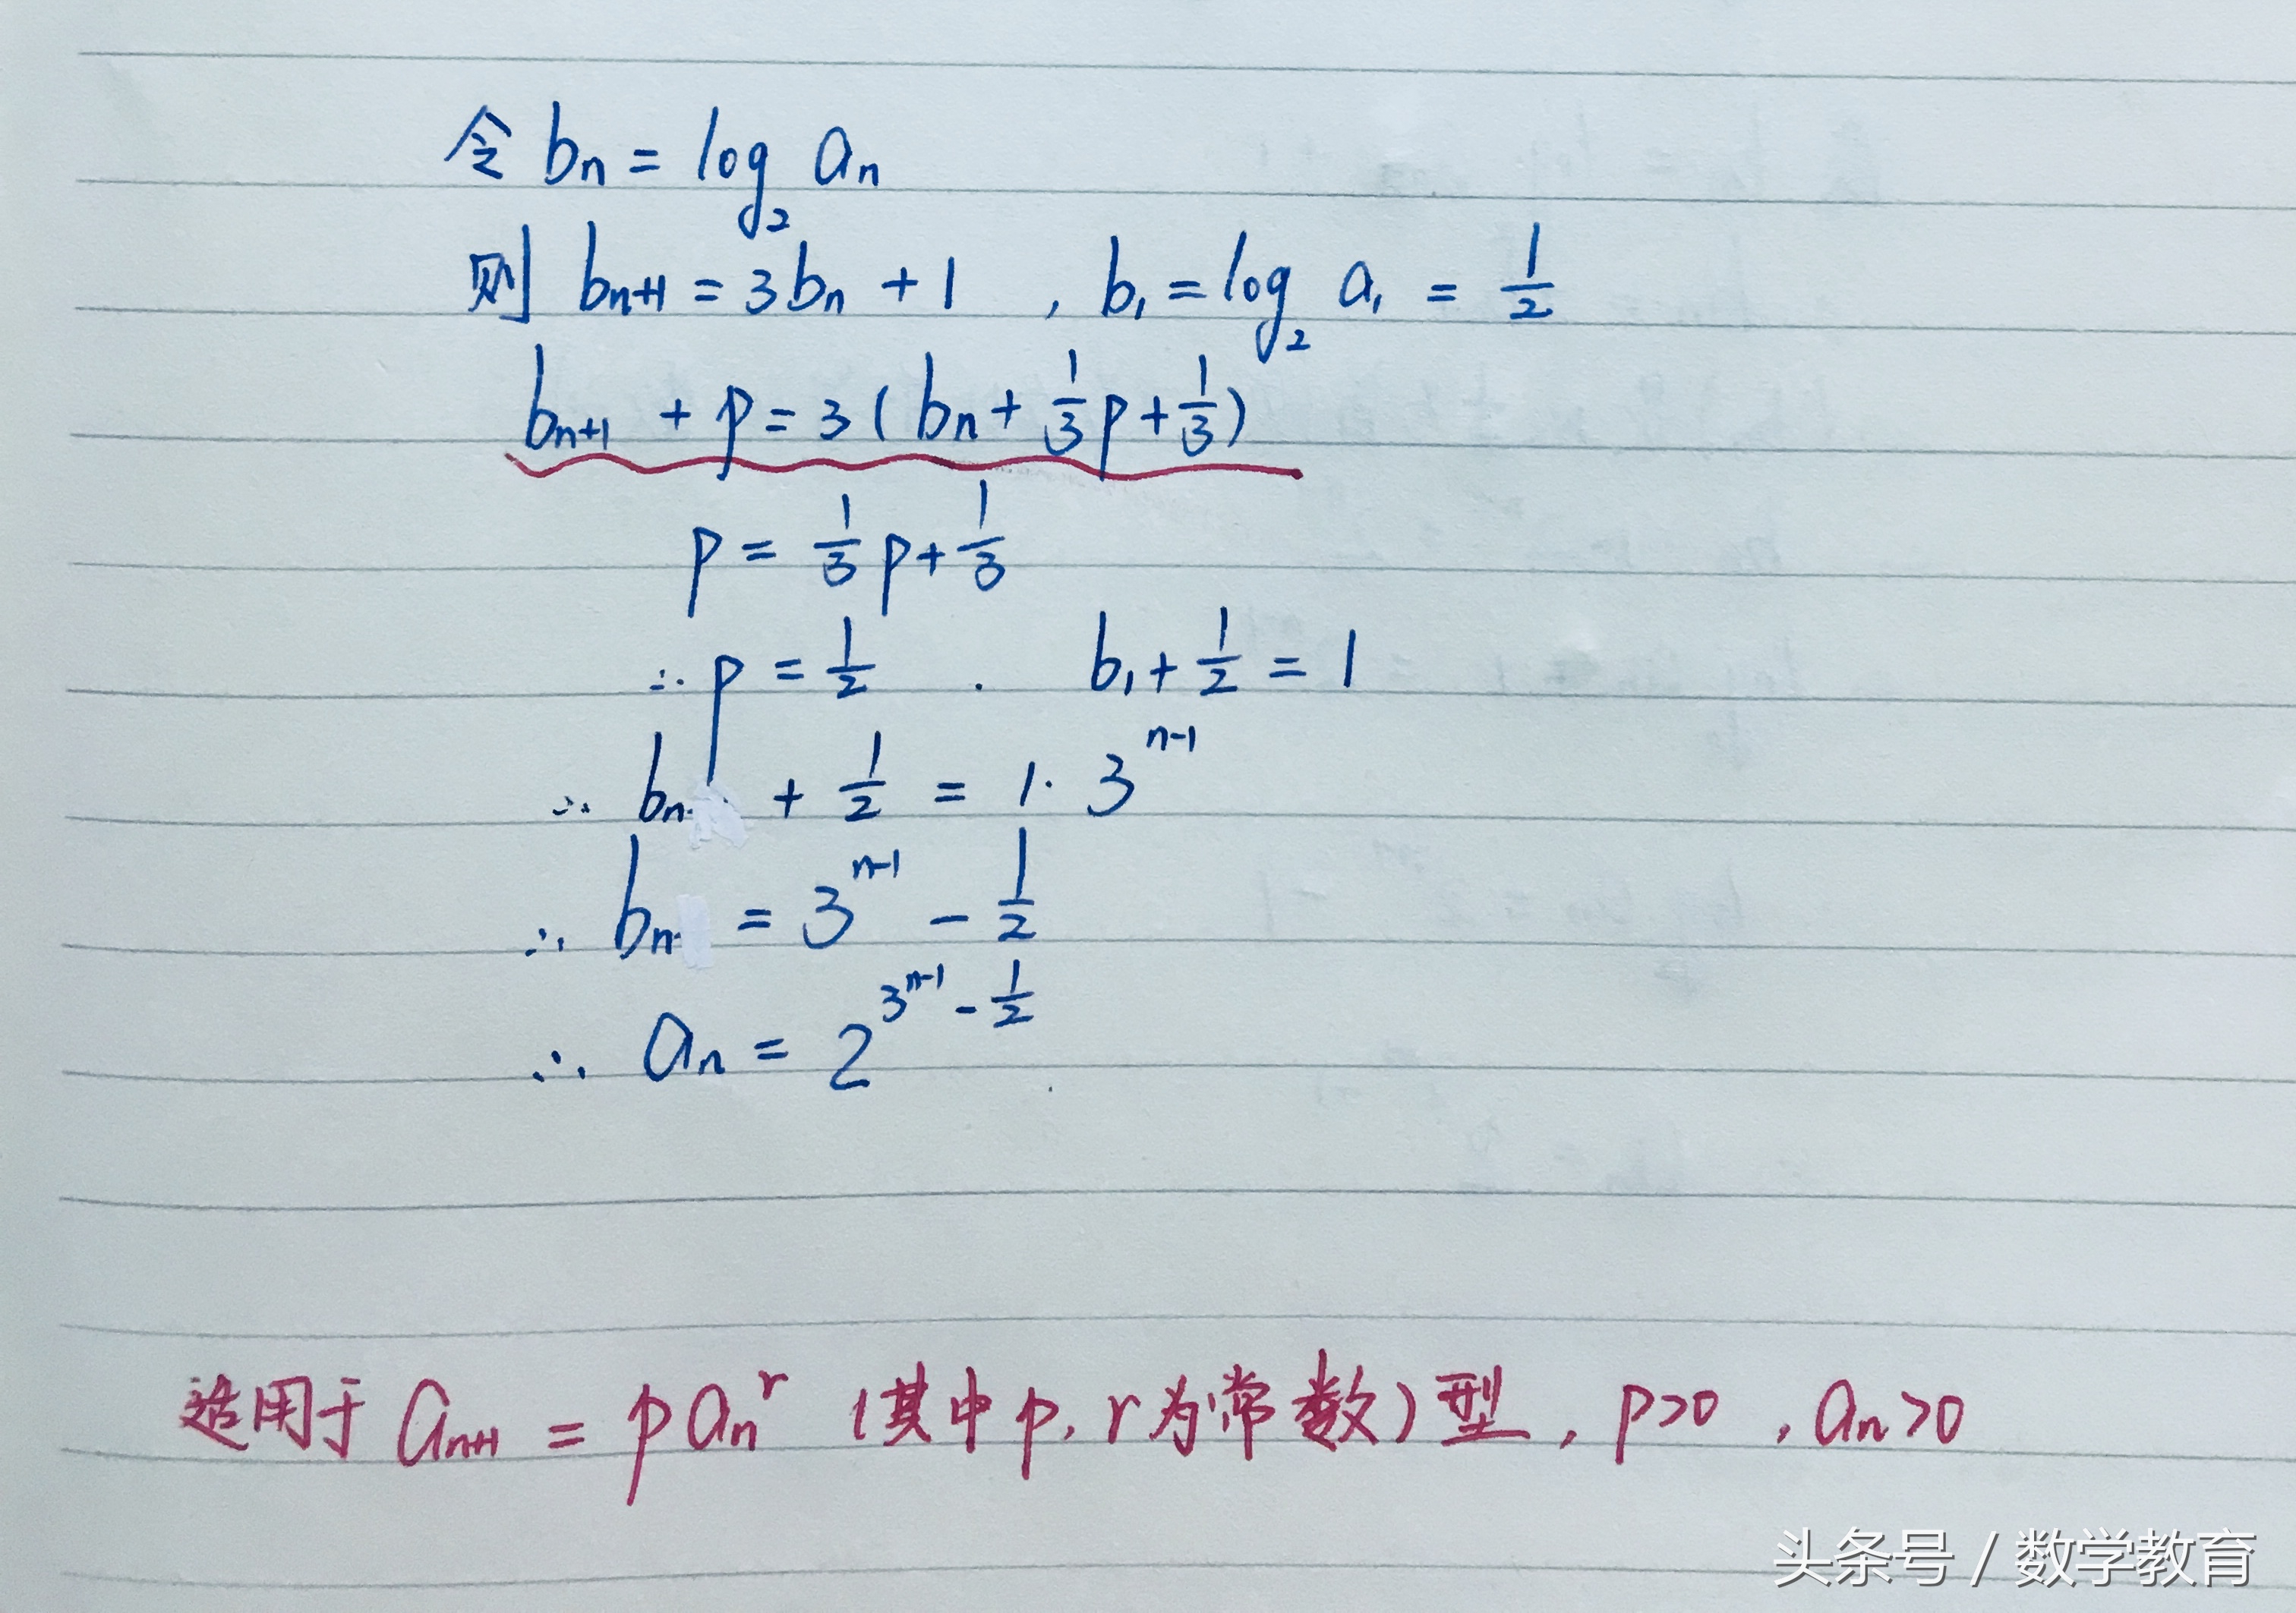 令 bₙ = log₂ aₙ
则 bₙ₊₁ = 3bₙ + 1 , b₁ = log₂ a₁ = 1/2
bₙ₊₁ + p = 3(bₙ + 1/3 p + 1/3)
p = 1/3 p + 1/3
∴ p = 1/2 . b₁ + 1/2 = 1
∴ bₙ + 1/2 = 1· 3ⁿ⁻¹
∴ bₙ = 3ⁿ⁻¹ - 1/2
∴ aₙ = 2^(3ⁿ⁻¹ - 1/2)
适用于 aₙ₊₁ = p aₙʳ (其中p, r为常数)型, p>0 , aₙ>0
头条号 / 数学教育